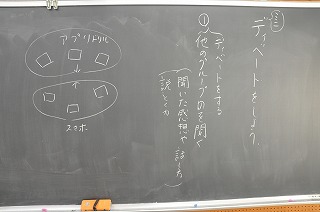 ミニディベートをしよう
ディベートをする
①他のグループのを聞く
聞いた感想や話し方
説とく力
アプリドリル
スマホ